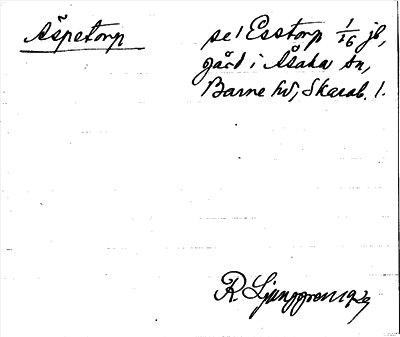 Åspetorp
se! Esstorp 1/16 jb,
gård i Åsaka sn,
Barne hd, Skarab. l.
R Ljunggren 1929